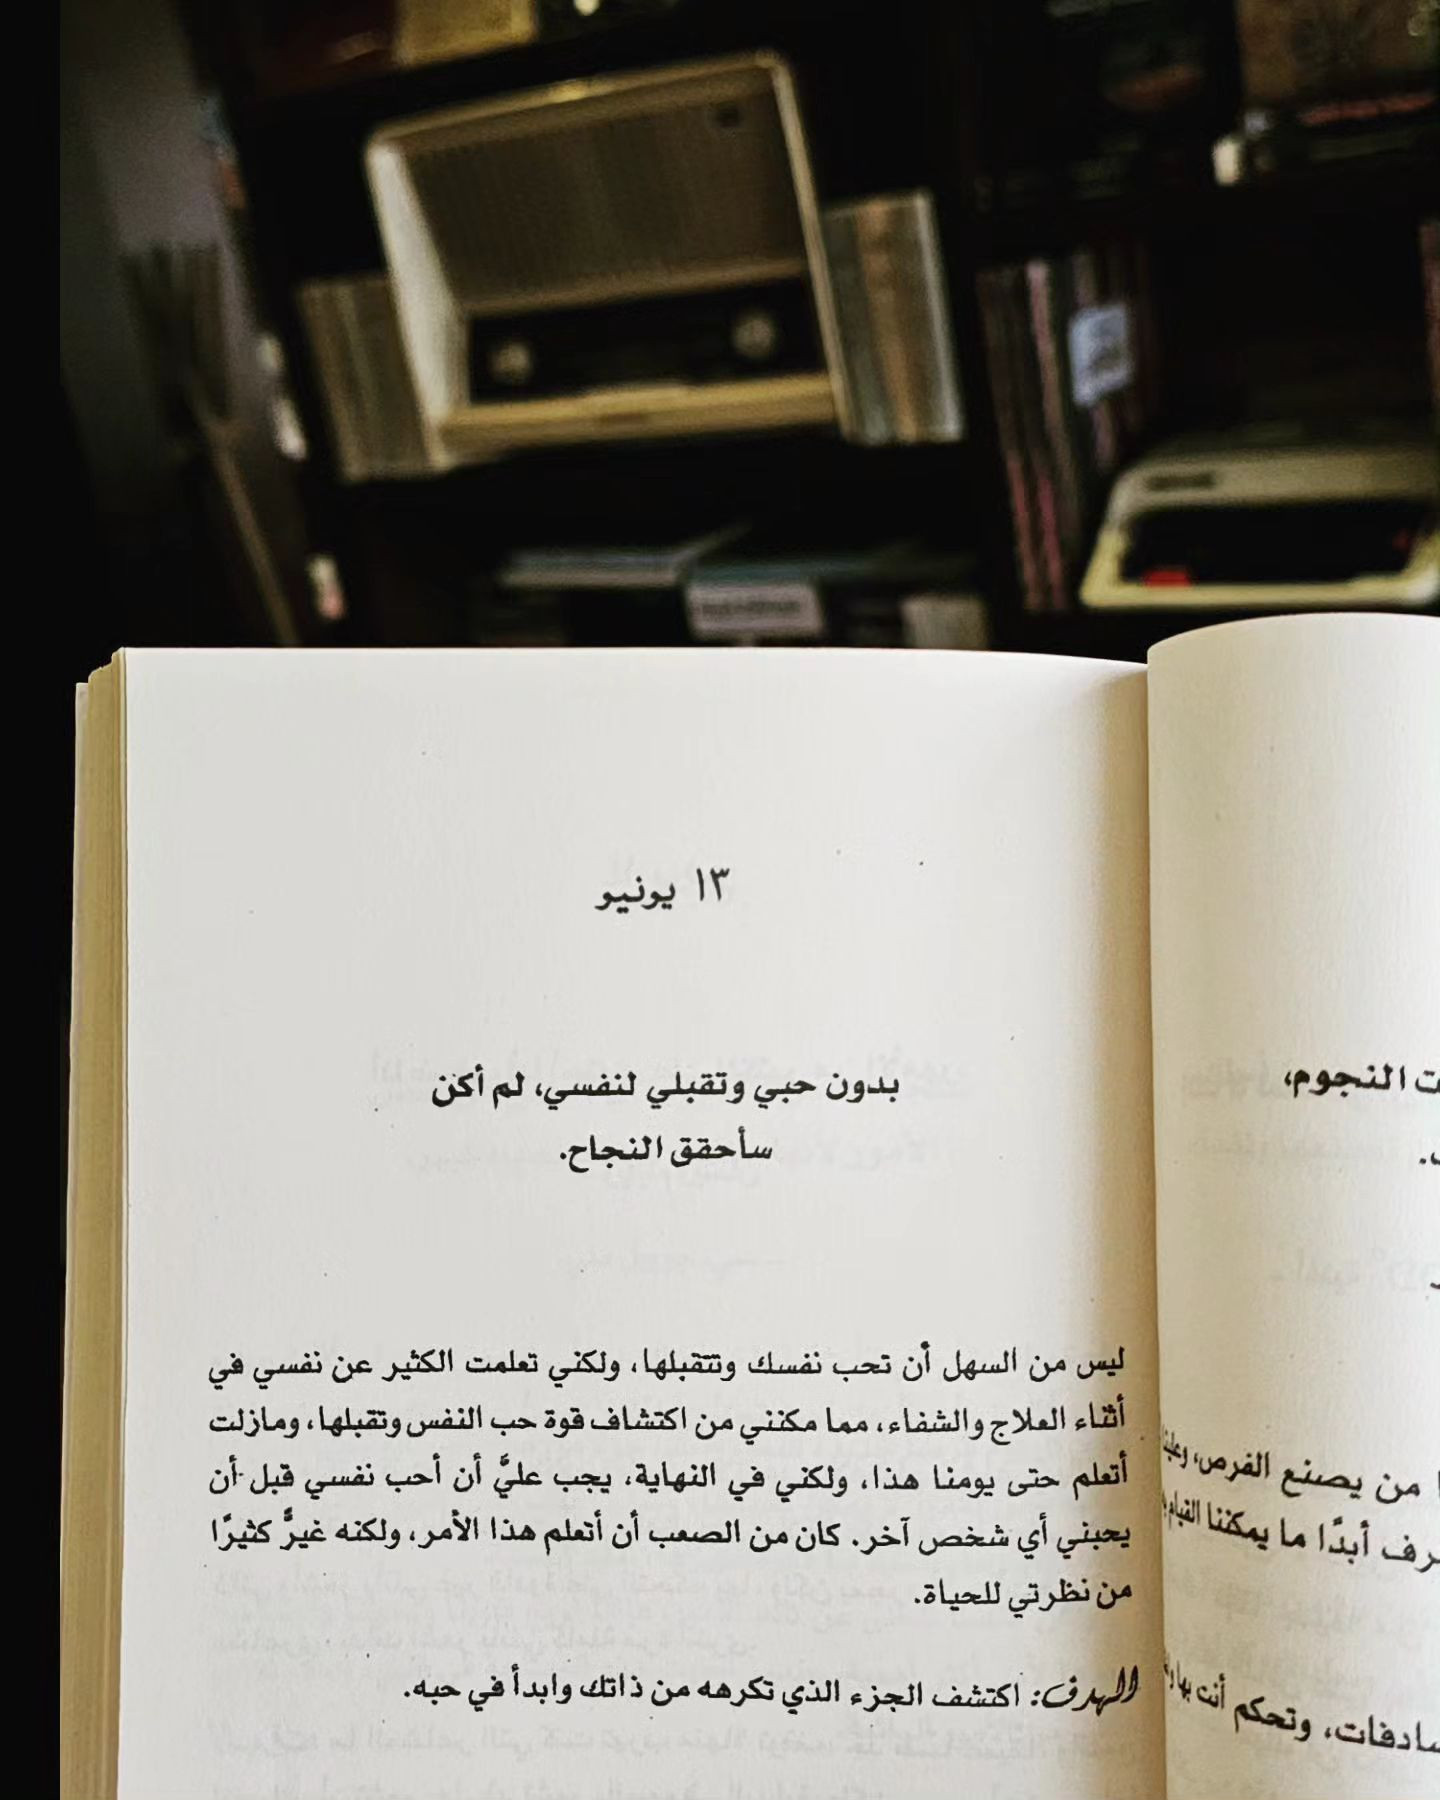 ١٣ يونيو
بدون حبي وتقبلي لنفسي، لم أكن
سأحقق النجاح.
ليس من السهل أن تحب نفسك وتتقبلها، ولكني تعلمت الكثير عن نفسي في
أثناء العلاج والشفاء، مما مكنني من اكتشاف قوة حب النفس وتقبلها، ومازلت
أتعلم حتى يومنا هذا، ولكني في النهاية، يجب عليَّ أن أحب نفسي قبل أن
يحبني أي شخص آخر. كان من الصعب أن أتعلم هذا الأمر، ولكنه غيرَّ كثيرًا
من نظرتي للحياة.
الهدف: اكتشف الجزء الذي تكرهه من ذاتك وابدأ في حبه.
النجوم،
من يصنع الفرص، وعلينا
أبدًا ما يمكننا القيام
وتحكم أنت بها